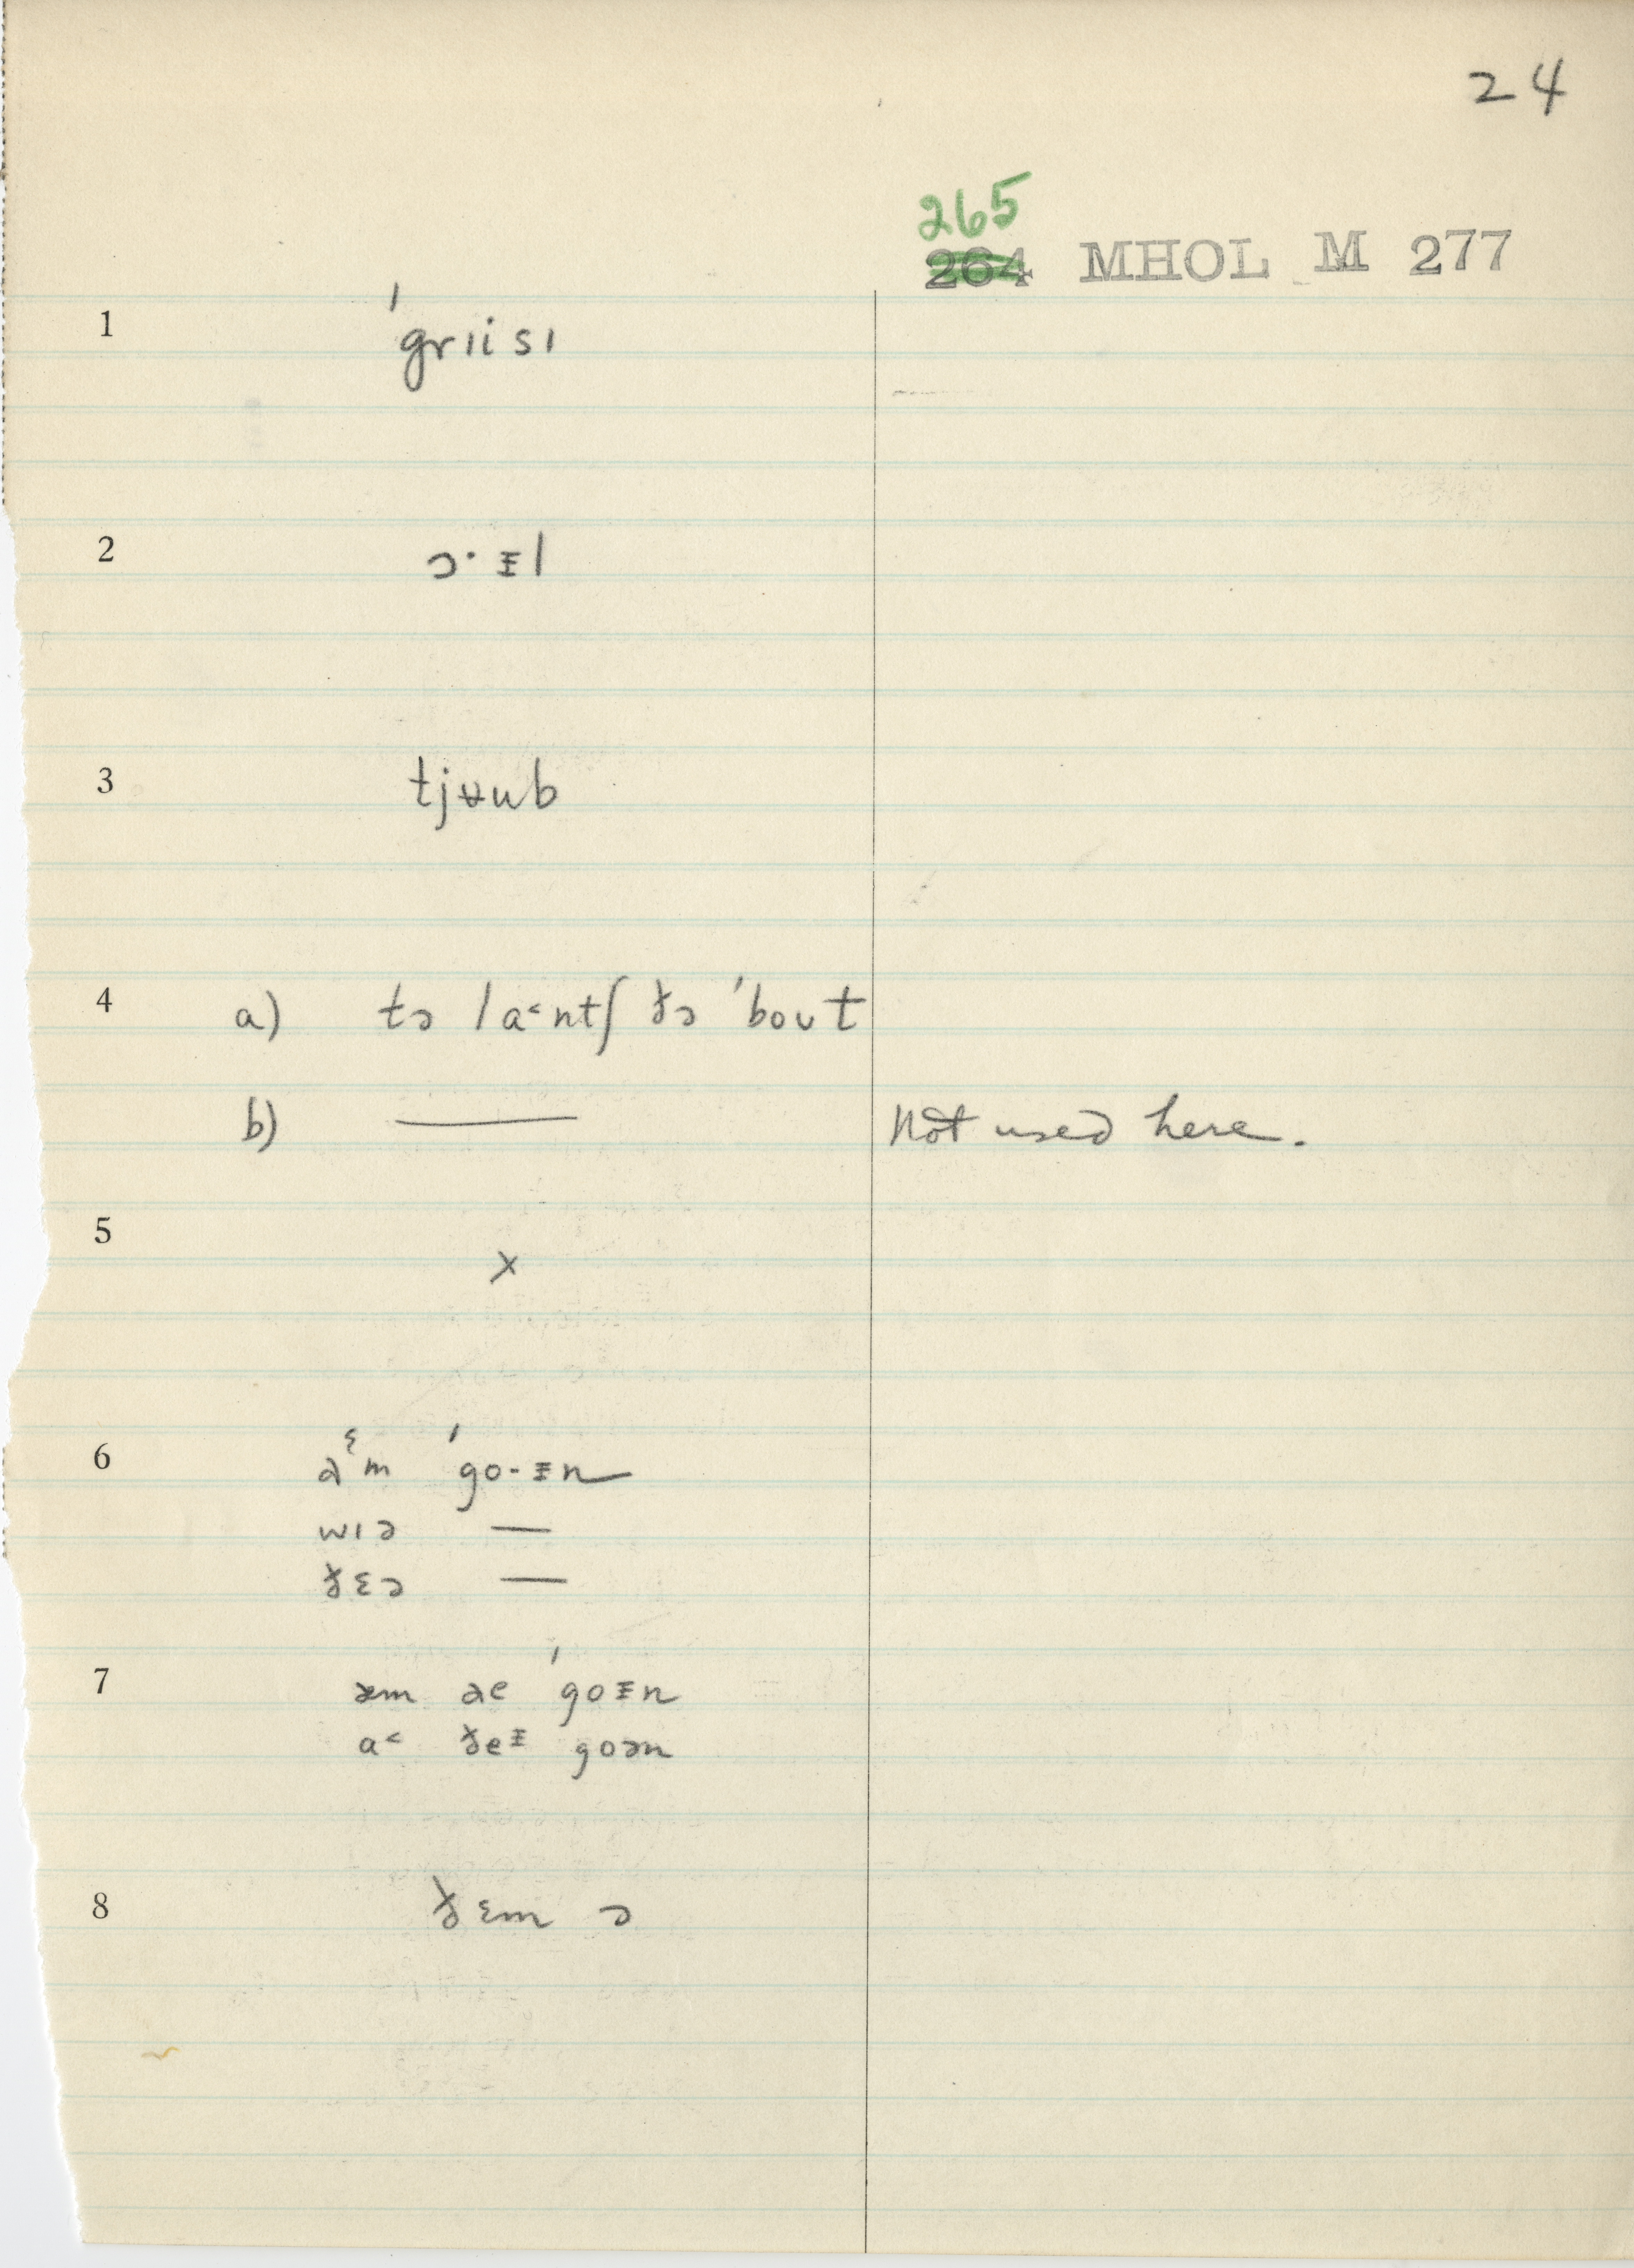 24
265
264 MHOL M 277
1 ˈgrɪisɪ
2 ɔ· ᵻl
3 tjʉub
4 a) tə la˂ntʃ ðə ˈboʊt
b) — Not used here.
5 x
6 aᵋm ˈgo-ᵻn
wɪə —
ðɛə —
7 æm ae ˈgoᵻn
a˂ ðeᵻ goən
8 ðɛm ɔ